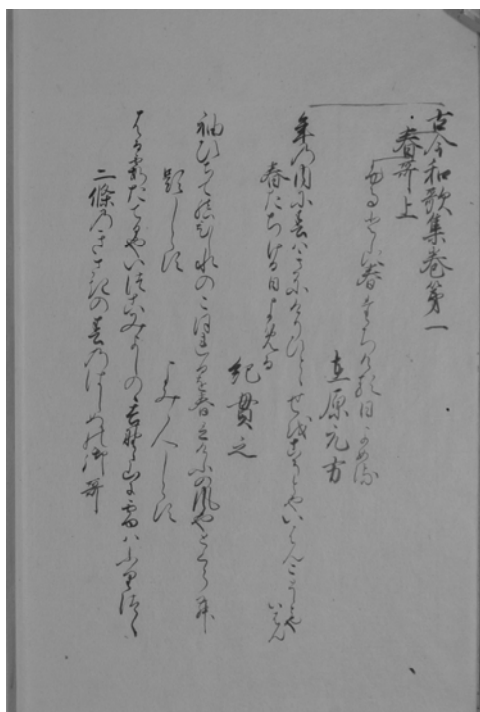 古今和歌集巻第一
春哥上
ふるとしに春たちける日よめる
在原元方
年の内に春はきにけりひとゝせをこそとやいはんことしとや
いはん
春たちける日よめる
紀貫之
袖ひちてむすひし水のこほれるを春立けふの風やとくらむ
題しらす
よみ人しらす
はる霞たてるやいつこみよしのゝ吉野の山に雪はふりつゝ
二條のきさきの春のはしめの御哥